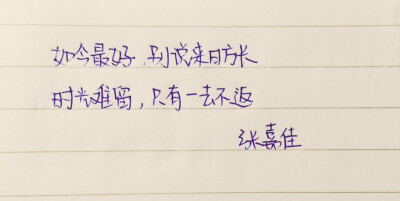 如今最好 别说来日方长
时光难留，只有一去不返
张嘉佳